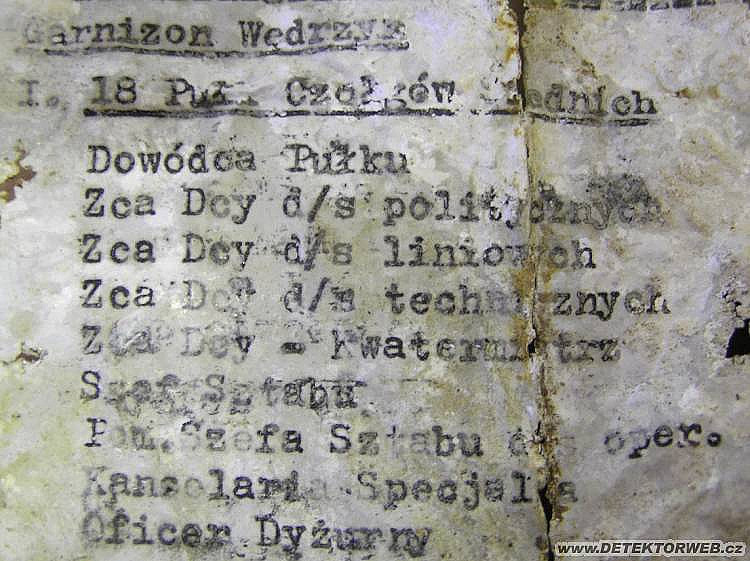 Garnizon Wędrzyn
I. 18 Pułk Czołgów Średnich
Dowódca Pułku
Zca Dcy d/s politycznych
Zca Dcy d/s liniowych
Zca Dcy d/s technicznych
Zca Dcy - Kwatermistrz
Szef Sztabu
Pom. Szefa Sztabu d/s oper.
Kanselaria Specjalna
Oficer Dyżurny
www.DETEKTORWEB.cz